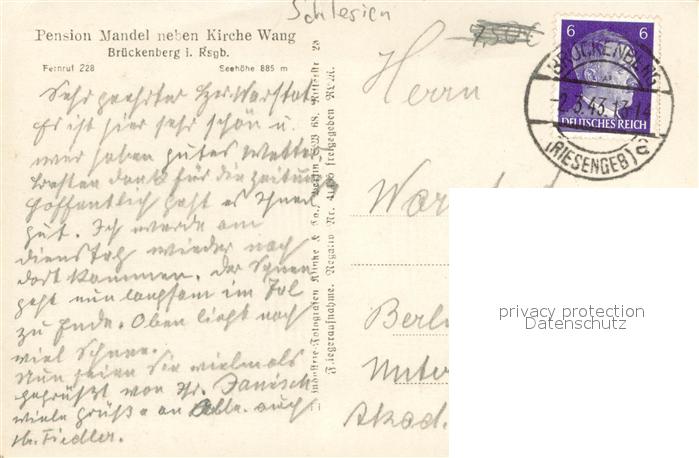 Schlesien
7,50€
Pension Mandel neben Kirche Wang
Brückenberg i. Rsgb.
Fernruf 228 Seehöhe 885 m
Sehr geehrter Herr Warstat
Es ist hier sehr schön u.
wir haben gutes Wetter.
Besten Dank für die Zeitung
Hoffentlich geht es Ihnen
gut. Ich werde am
Dienstag wieder nach
dort kommen. Der Schnee
geht nun langsam im Tal
zu Ende. Oben liegt noch
viel Schnee.
Nun seien Sie vielmals
gegrüßt von Ihr. Janisch
viele Grüße an alle. auch
Hr. Fiedler.
Industrie-Fotografen Klinke & Co., Berlin SW 68, Ritterstr.
Fliegeraufnahme. Negativ Nr. freigegeben RLM.
Herrn
Berlin
Unter
Akad.
6 6
DEUTSCHES REICH
BRÜCKENBERG
-2.5.43.13-14
(RIESENGEB)
privacy protection
Datenschutz